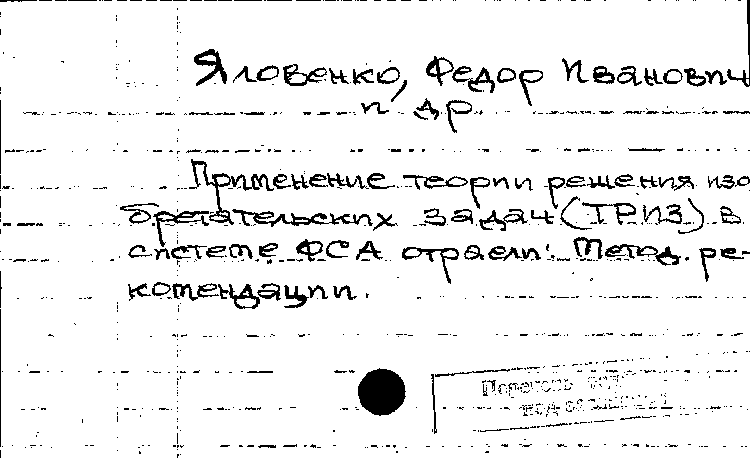 Яловенко, Федор Иванович
и др.
Применение теории решения изо
бретательских задач (ТРИЗ) в
системе ФСА отрасли: Метод. ре-
комендации.